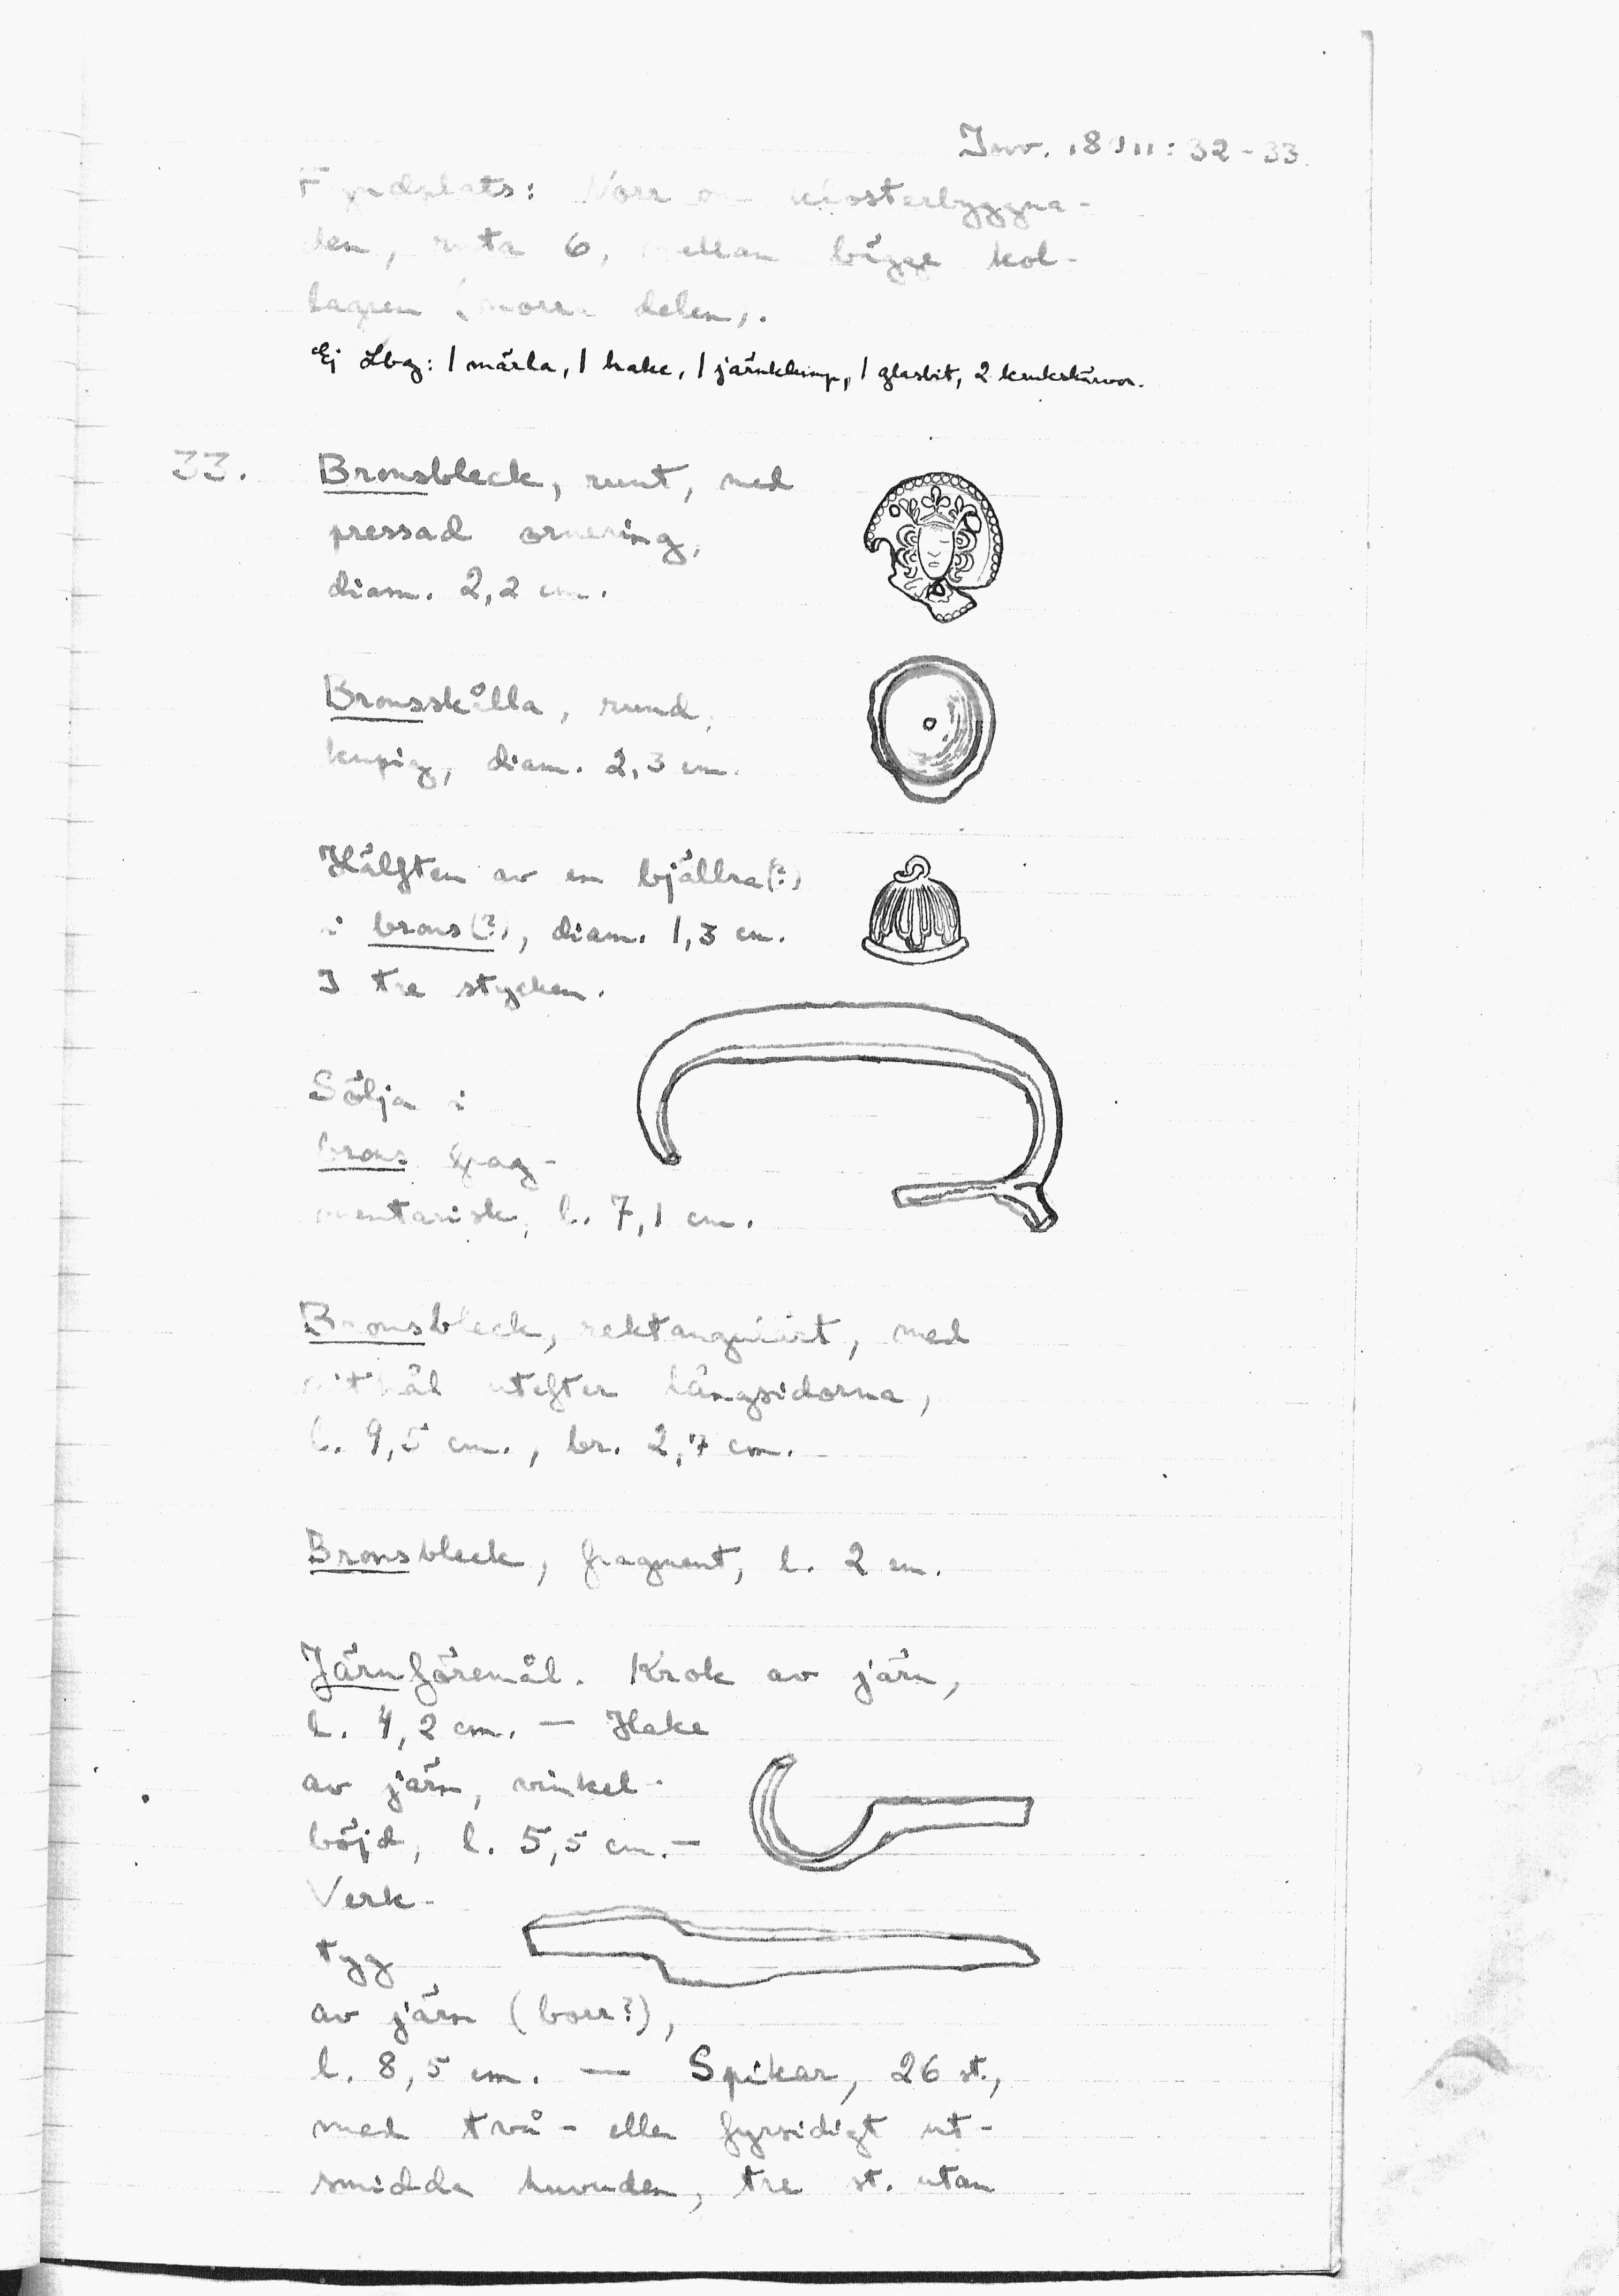 Inv. 18111: 32-33.
Fyndplats: Norr om klosterbyggna-
den, ruta 6, mellan bägge kol-
lagren (norra delen).
Ej Lbg: 1 märla, 1 hake, 1 järnklump, 1 glasbit, 2 krukskärvor.
33. Bronsbleck, runt, med
pressad ornering,
diam. 2,2 cm.
Bronsskålla, rund,
kupig, diam. 2,3 cm.
Hälften av en bjällra(?)
i brons(?), diam. 1,3 cm.
I tre stycken.
Sölja i
brons frag-
mentarisk, l. 7,1 cm.
Bronsbleck, rektangulärt, med
nithål utefter långsidorna,
l. 9,5 cm., br. 2,7 cm.
Bronsbleck, fragment, l. 2 cm.
Järnföremål. Krok av järn,
l. 4,2 cm. — Hake
av järn, vinkel-
böjd, l. 5,5 cm. —
Verk-
tyg
av järn (borr?),
l. 8,5 cm. — Spikar, 26 st.,
med två- eller fyrsidigt ut-
smidda huvuden, tre st. utan